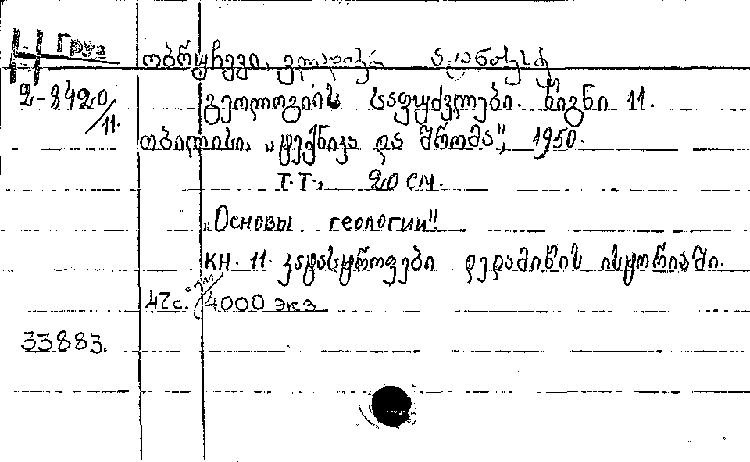 Груз
ობრუჩევი, ვლადიმერ
2-8420/11.
გეოლოგიის საფუძვლები. წიგნი 11.
თბილისი, „ტექნიკა და შრომა", 1950.
т.т., 20 см.
„Основы геологии"
кн. 11. კატასტროფები დედამიწის ისტორიაში.
47 с. 4000 экз
33883.